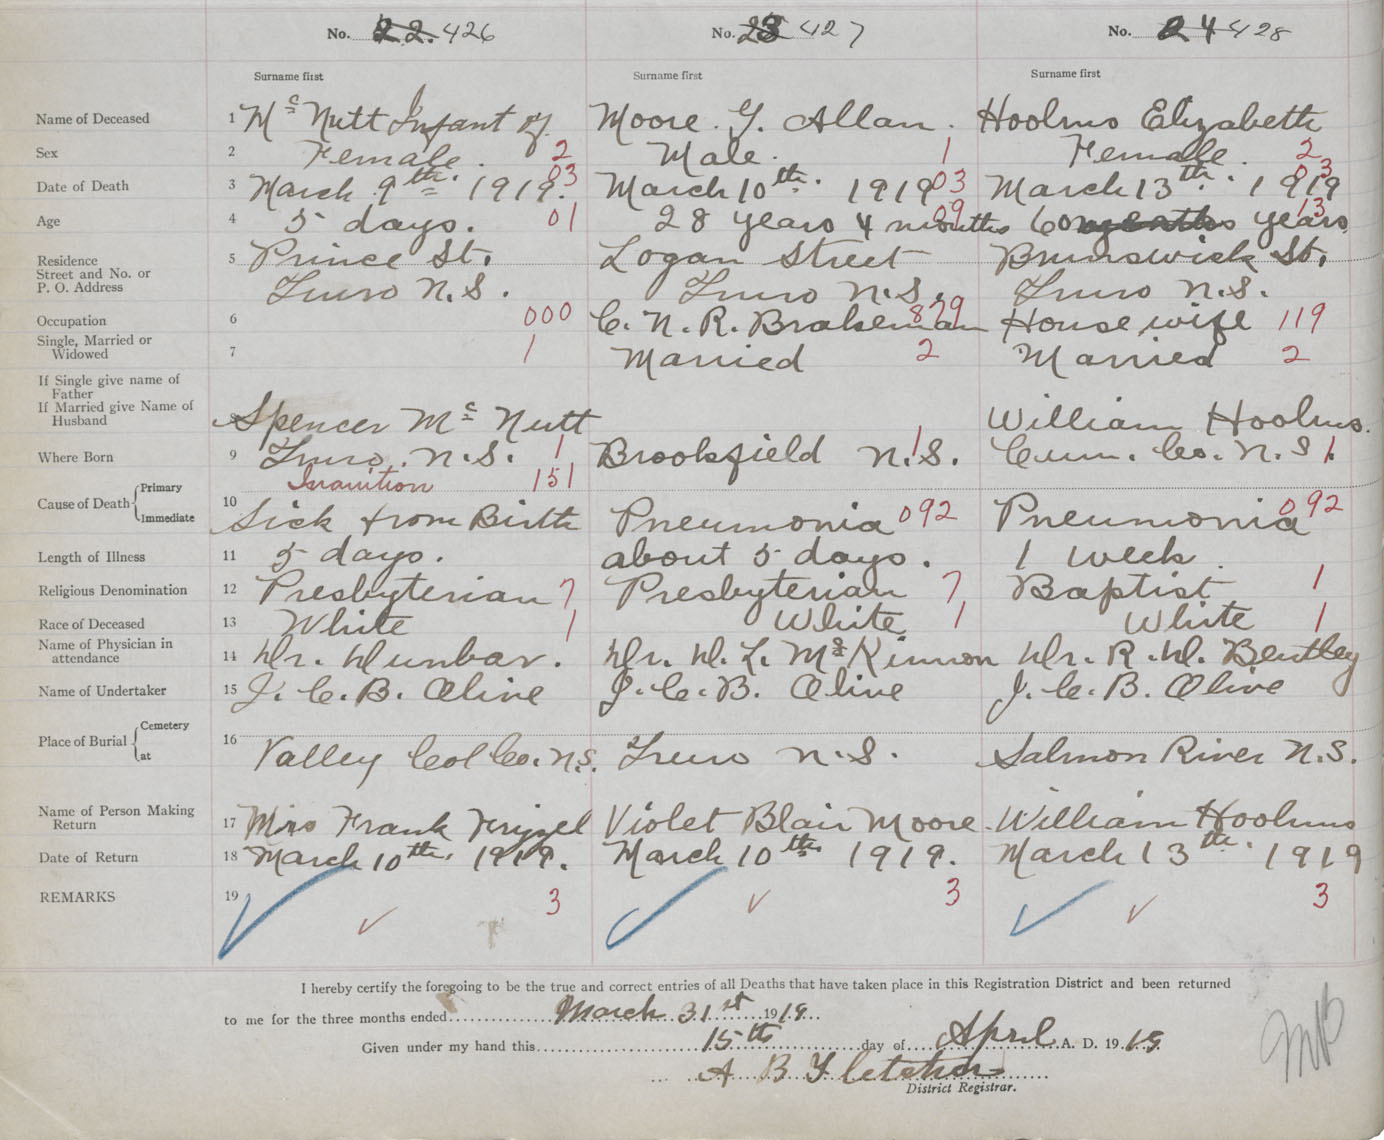 No. 22. 426 No. 23 427 No. 24 428
Surname first Surname first Surname first
Name of Deceased 1 Mc Nutt Infant of Moore. G. Allan. Hoolms Elizabeth
Sex 2 Female. 2 Male. 1 Female. 2
Date of Death 3 March 9th. 1919. 03 March 10th. 1919 03 March 13th. 1919 03
Age 4 5 days. 01 28 years 4 months 09 60 years 13
Residence 5 Prince St. Logan Street Brunswick St.
Street and No. or
P. O. Address Truro N.S. Truro N.S. Truro N.S.
Occupation 6 000 C. N. R. Brakeman 879 Housewife 119
Single, Married or
Widowed 7 1 Married 2 Married 2
If Single give name of
Father
If Married give Name of
Husband 8 Spencer Mc Nutt William Hoolms.
Where Born 9 Truro. N.S. 1 Brookfield N.S. 1 Cum. Co. N.S. 1
Inanition 151
Cause of Death { Primary
Immediate 10 Sick from Birth Pneumonia 092 Pneumonia 092
Length of Illness 11 5 days. about 5 days. 1 week.
Religious Denomination 12 Presbyterian 7 Presbyterian 7 Baptist 1
Race of Deceased 13 White 1 White 1 White 1
Name of Physician in
attendance 14 Dr. Dunbar. Dr. D. L. McKinnon Dr. R. D. Bentley
Name of Undertaker 15 J. C. B. Olive J. C. B. Olive J. C. B. Olive
Place of Burial { Cemetery
at 16 Valley Col Co. N.S. Truro N.S. Salmon River N.S.
Name of Person Making
Return 17 Mrs Frank Frizzel Violet Blair Moore. William Hoolms
Date of Return 18 March 10th. 1919. March 10th. 1919. March 13th. 1919
REMARKS 19 3 3 3
I hereby certify the foregoing to be the true and correct entries of all Deaths that have taken place in this Registration District and been returned
to me for the three months ended March 31st 1919
Given under my hand this 15th day of April A. D. 1919
A B Fletcher
District Registrar.